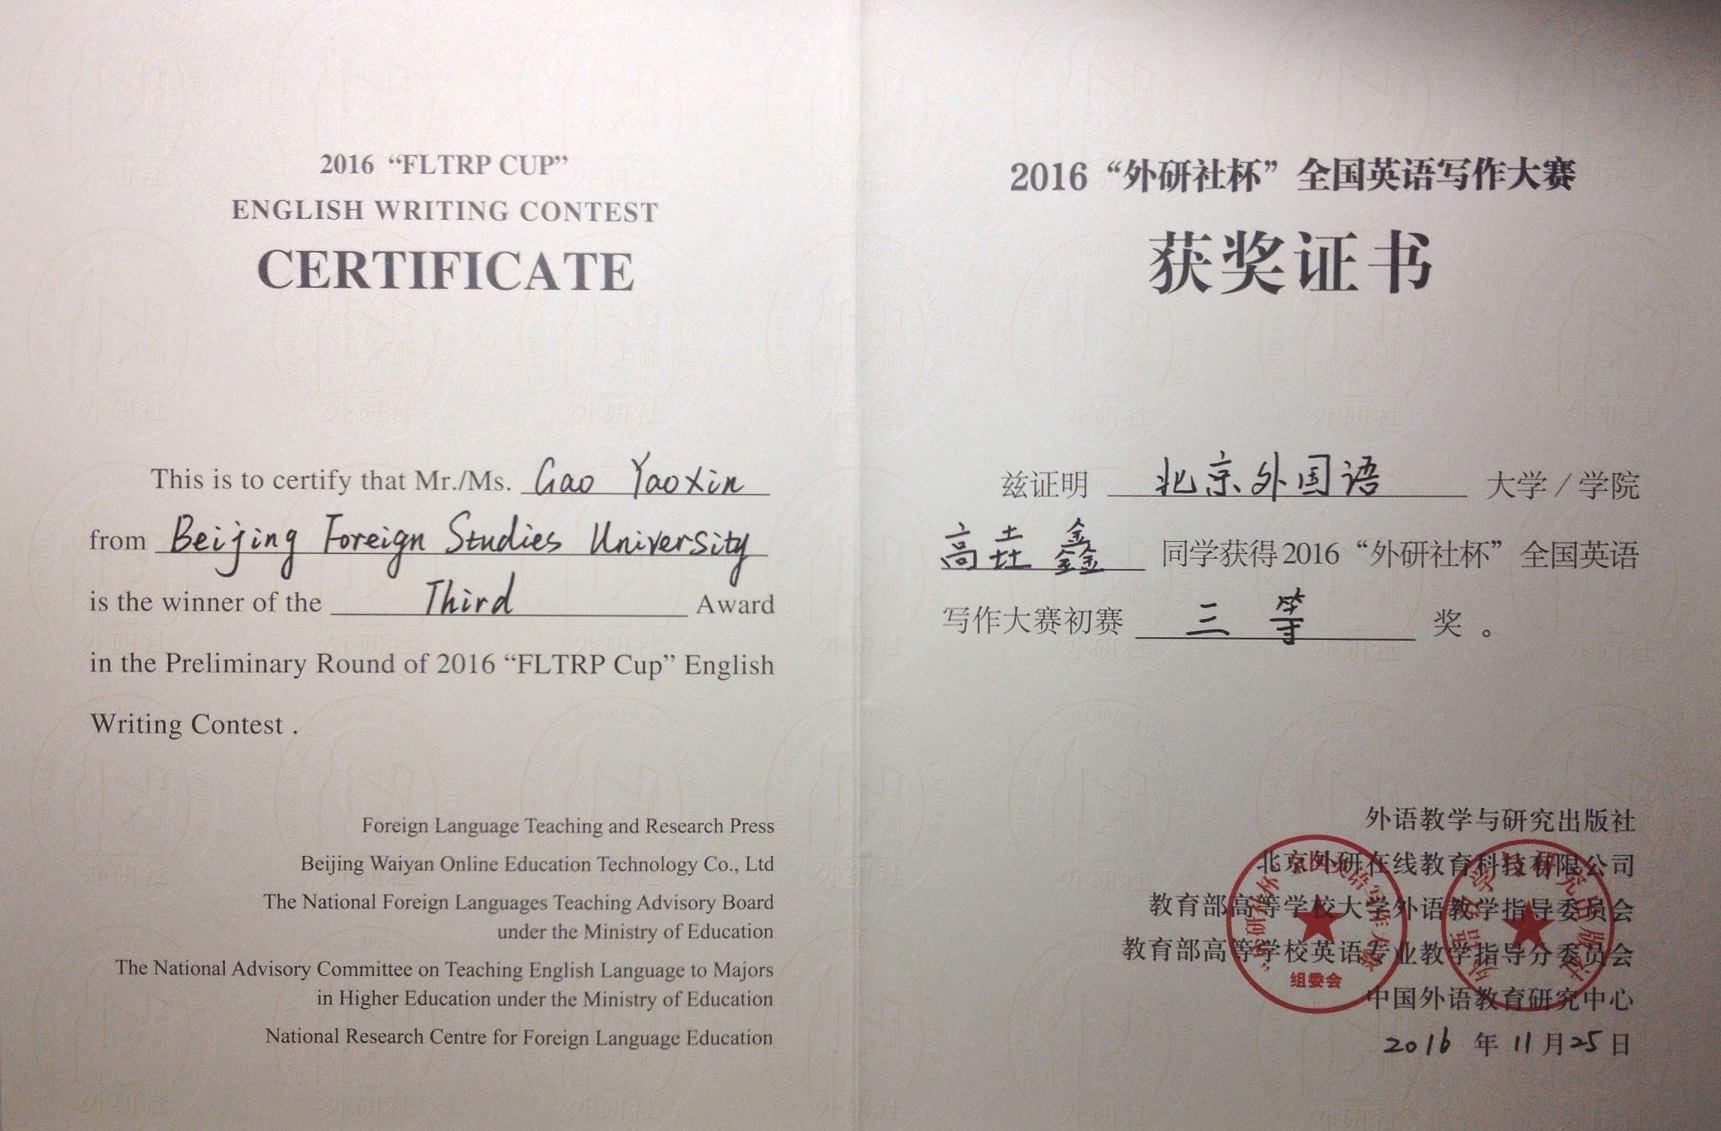 2016 “FLTRP CUP”
ENGLISH WRITING CONTEST
CERTIFICATE
This is to certify that Mr./Ms. Gao Yaoxin
from Beijing Foreign Studies University
is the winner of the Third Award
in the Preliminary Round of 2016 “FLTRP Cup” English
Writing Contest .
Foreign Language Teaching and Research Press
Beijing Waiyan Online Education Technology Co., Ltd
The National Foreign Languages Teaching Advisory Board
under the Ministry of Education
The National Advisory Committee on Teaching English Language to Majors
in Higher Education under the Ministry of Education
National Research Centre for Foreign Language Education
2016 “外研社杯” 全国英语写作大赛
获奖证书
兹证明 北京外国语 大学 / 学院
高垚鑫 同学获得2016 “外研社杯” 全国英语
写作大赛初赛 三等 奖 。
外语教学与研究出版社
北京外研在线教育科技有限公司
教育部高等学校大学外语教学指导委员会
教育部高等学校英语专业教学指导分委员会
中国外语教育研究中心
2016 年 11 月 25 日
组委会
外语教学与研究出版社
外研社